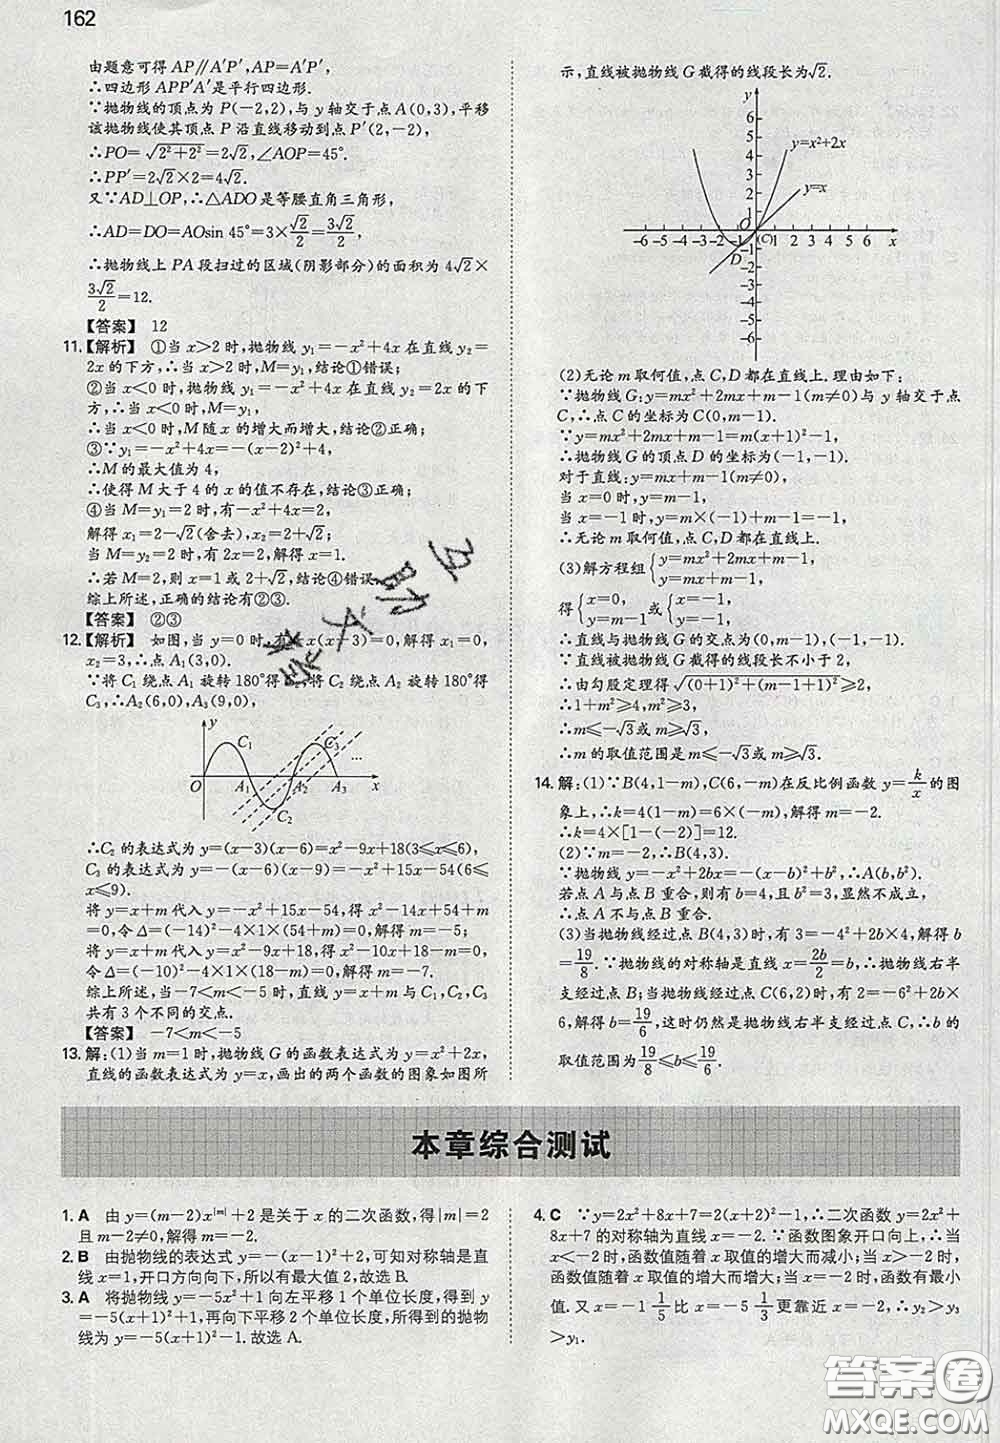 162
由题意可得 AP∥A′P′,AP=A′P′,
∴四边形 APP′A′是平行四边形.
∵抛物线的顶点为 P(-2,2),与 y 轴交于点 A(0,3),平移
该抛物线使其顶点 P 沿直线移动到点 P′(2,-2),
∴PO=√(2²+2²)=2√2,∠AOP=45°.
∴PP′=2√2×2=4√2.
又∵AD⊥OP,∴△ADO 是等腰直角三角形,
∴AD=DO=AOsin 45°=3×√2/2=3√2/2.
∴抛物线上 PA 段扫过的区域(阴影部分)的面积为 4√2×
3√2/2=12.
【答案】 12
11.【解析】 ①当 x>2 时,抛物线 y₁=-x²+4x 在直线 y₂=
2x 的下方,∴当 x>2 时,M=y₁,结论①错误;
②当 x<0 时,抛物线 y₁=-x²+4x 在直线 y₂=2x 的下
方,∴当 x<0 时,M=y₁,
∴当 x<0 时,M 随 x 的增大而增大,结论②正确;
③∵y₁=-x²+4x=-(x-2)²+4,
∴M 的最大值为 4,
∴使得 M 大于 4 的 x 的值不存在,结论③正确;
④当 M=y₁=2 时,有-x²+4x=2,
解得 x₁=2-√2(舍去),x₂=2+√2;
当 M=y₂=2 时,有 2x=2,解得 x=1.
∴若 M=2,则 x=1 或 2+√2,结论④错误.
综上所述,正确的结论有②③.
【答案】 ②③
12.【解析】 如图,当 y=0 时,有 x(x-3)=0,解得 x₁=0,
x₂=3,∴点 A₁(3,0).
∵将 C₁ 绕点 A₁ 旋转 180°得 C₂,将 C₂ 绕点 A₂ 旋转 180°得
C₃,∴A₂(6,0),A₃(9,0),
y C₁ C₃ …
O A₁ A₂ A₃ x
C₂
∴C₂ 的表达式为 y=(x-3)(x-6)=x²-9x+18(3≤x≤6),
C₃ 的表达式为 y=-(x-6)(x-9)=-x²+15x-54(6≤
x≤9).
将 y=x+m 代入 y=-x²+15x-54,得 x²-14x+54+m
=0,令 Δ=(-14)²-4×1×(54+m)=0,解得 m=-5;
将 y=x+m 代入 y=x²-9x+18,得 x²-10x+18-m=0,
令 Δ=(-10)²-4×1×(18-m)=0,解得 m=-7.
综上所述,当-7<m<-5 时,直线 y=x+m 与 C₁、C₂、C₃
共有 3 个不同的交点.
【答案】 -7<m<-5
13.解:(1)当 m=1 时,抛物线 G 的函数表达式为 y=x²+2x,
直线的函数表达式为 y=x,画出的两个函数的图象如图所
示,直线被抛物线 G 截得的线段长为√2.
y
6
5
4
3
2
1
y=x²+2x
y=x
O
-6 -5 -4 -3 -2 -1 (C) 1 2 3 4 5 6 x
D
-1
-2
-3
-4
-5
-6
(2)无论 m 取何值,点 C,D 都在直线上.理由如下:
∵抛物线 G:y=mx²+2mx+m-1(m≠0)与 y 轴交于点
C,∴点 C 的坐标为 C(0,m-1).
∵y=mx²+2mx+m-1=m(x+1)²-1,
∴抛物线 G 的顶点 D 的坐标为(-1,-1).
对于直线:y=mx+m-1(m≠0),
当 x=0 时,y=m-1,
当 x=-1 时,y=m×(-1)+m-1=-1,
∴无论 m 取何值,点 C,D 都在直线上.
(3)解方程组{y=mx²+2mx+m-1, y=mx+m-1,
得{x=0, y=m-1 或{x=-1, y=-1,
∴直线与抛物线 G 的交点为(0,m-1),(-1,-1).
∵直线被抛物线 G 截得的线段长不小于 2,
∴由勾股定理得√((0+1)²+(m-1+1)²)≥2,
∴1+m²≥4,m²≥3,
∴m≤-√3或 m≥√3,
∴m 的取值范围是 m≤-√3或 m≥√3.
14.解:(1)∵B(4,1-m),C(6,-m)在反比例函数 y=k/x 的图
象上,∴k=4(1-m)=6×(-m),解得 m=-2.
∴k=4×[1-(-2)]=12.
(2)∵m=-2,∴B(4,3).
∵抛物线 y=-x²+2bx=-(x-b)²+b²,∴A(b,b²).
若点 A 与点 B 重合,则有 b=4,且 b²=3,显然不成立,
∴点 A 不与点 B 重合.
(3)当抛物线经过点 B(4,3)时,有 3=-4²+2b×4,解得 b
=19/8.∵抛物线的对称轴是直线 x=2b/2=b,∴抛物线右半
支经过点 B;当抛物线经过点 C(6,2)时,有 2=-6²+2b×
6,解得 b=19/6,这时仍然是抛物线右半支经过点 C,∴b 的
取值范围为 19/8≤b≤19/6.
本章综合测试
1. A 由 y=(m-2)x^|m|+2 是关于 x 的二次函数,得|m|=2
且 m-2≠0,解得 m=-2.
2. B 由抛物线的表达式 y=-(x-1)²+2,可知对称轴是直
线 x=1,开口方向向下,所以有最大值 2,故选 B.
3. A 将抛物线 y=-5x²+1 向左平移 1 个单位长度,得到 y
=-5(x+1)²+1,再向下平移 2 个单位长度,所得到的抛物
线为 y=-5(x+1)²-1.故选 A.
4. C ∵y=2x²+8x+7=2(x+2)²-1,∴二次函数 y=2x²+
8x+7 的对称轴为直线 x=-2.∵函数图象开口向上,∴当
x<-2 时,函数值随着 x 取值的增大而减小;当 x>-2 时,
函数值随着 x 取值的增大而增大.∵当 x=-2 时,函数值最
小值.又 x=-1 1/5 比 x=-5 1/3 更靠近 x=-2,∴y₂>y₃
>y₁.
答案圈
MXQE.COM